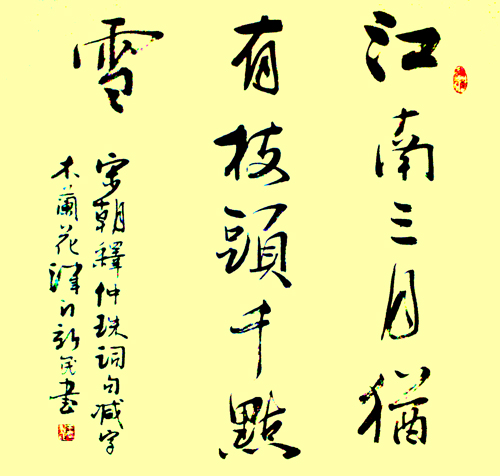 江南三月猶
有枝頭千點
雪
宋朝釋仲珠詞句减字
木蘭花民書